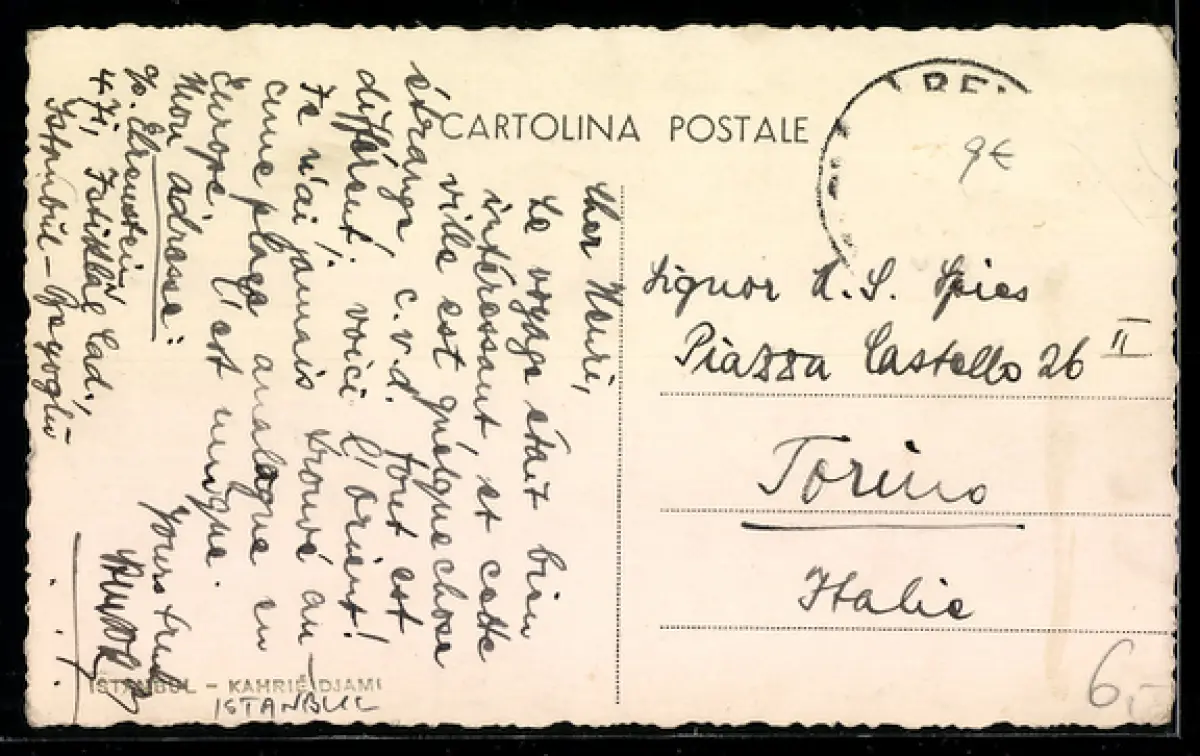 CARTOLINA POSTALE
9€
Cher Henri,
Le voyage était bien
intéressant, et cette
ville est quelque chose
étrange, c.v.d. tout est
différent: voici l'orient!
Je n'ai jamais trouvé au-
cune place analogue en
Europe. C'est unique.
Mon adresse:
c/o. Ehrenstein
471, Istiklâl Cad.,
Istanbul - Beyoğlu
Yours
Signor H. S. Spies
Piazza Castello 26 II
Torino
Italie
ISTANBUL - KAHRIÉ DJAMI
ISTANBUL
6,-